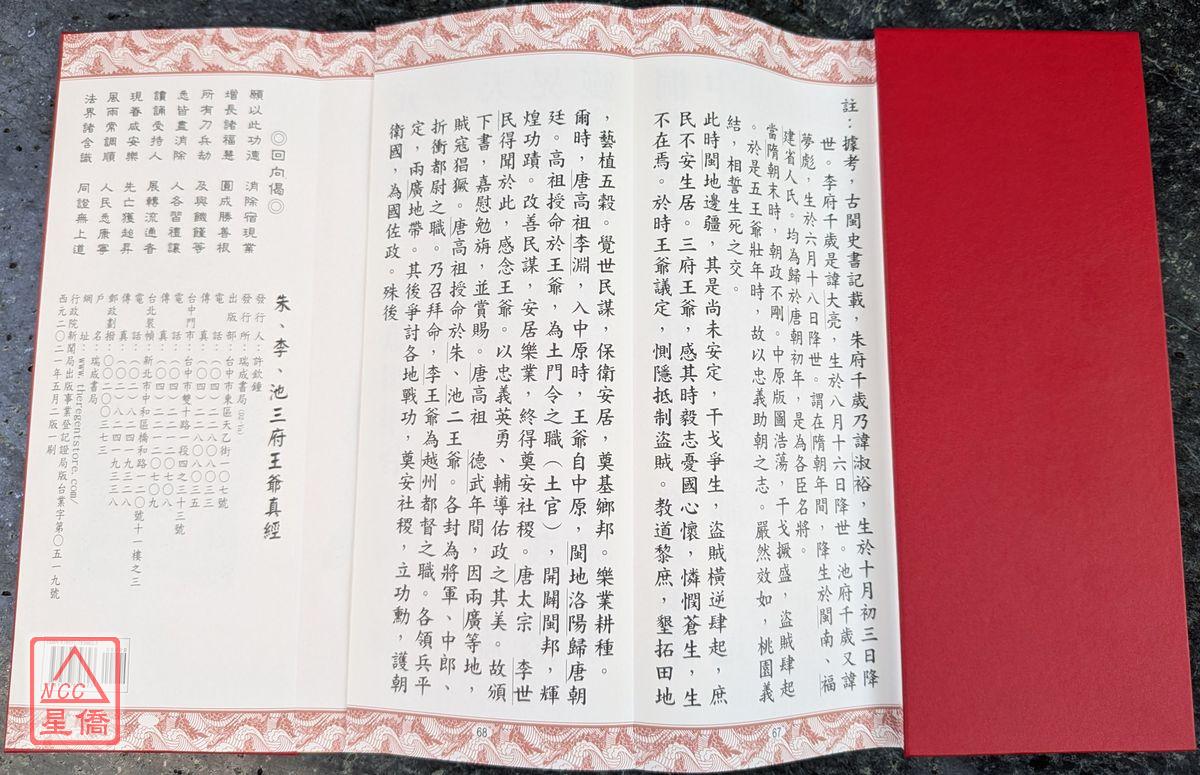 註：據考，古閩史書記載，朱府千歲乃諱淑裕，生於十月初三日降
世。李府千歲是諱大亮，生於八月十六日降世。池府千歲又諱
夢彪，生於六月十八日降世。謂在隋朝年間，降生於閩南、福
建省人氏。均為歸於唐朝初年，是為各臣名將。
當隋朝末時，朝政不剛。中原版圖浩蕩，干戈撅盛，盜賊肆起
。於是五王爺壯年時，故以忠義助朝之志。嚴然效如，桃園義
結，相誓生死之交。
此時閩地邊疆，其是尚未安定，干戈爭生，盜賊橫逆肆起，庶
民不安生居。三府王爺，感其時毅志憂國心懷，憐憫蒼生，生
不在焉。於時王爺議定，惻隱抵制盜賊。教道黎庶，墾拓田地
，藝植五穀。覺世民謀，保衛安居，奠基鄉邦。樂業耕種。
爾時，唐高祖李淵，入中原時，王爺自中原，閩地洛陽歸唐朝
廷。高祖授命於王爺，為土門令之職（土官），開闢閩邦，輝
煌功蹟。改善民謀，安居樂業，終得奠安社稷。唐太宗　李世
民得聞於此，感念王爺。以忠義英勇、輔導佑政之其美。故頒
下書，嘉慰勉旃，並賞賜。唐高祖　德武年間，因兩廣等地，
賊寇猖獗。唐高祖授命於朱、池二王爺。各封為將軍、中郎、
折衝都尉之職。乃召拜命，李王爺為越州都督之職。各領兵平
定，兩廣地帶。其後爭討各地戰功，奠安社稷，立功勳，護朝
衛國，為國佐政。殊後
67
68
◎回向偈◎
願以此功德　消除宿現業
增長諸福慧　圓成勝善根
所有刀兵劫　及與饑饉等
悉皆盡消除　人各習禮讓
讀誦受持人　展轉流通者
現眷咸安樂　先亡獲超昇
風雨常調順　人民悉康寧
法界諸含識　同證無上道
朱、李、池三府王爺真經
發行人：許欽鐘
發行所：瑞成書局
出版部：台中市東區天乙街一〇七號
電話：（〇四）二二一二〇〇八〇三三
傳真：
台中門市：台中市雙十路一段四之三十三號
電話：
傳真：
台北裝幀：新北市中和區橋和路一二〇號十一樓之三
電話：
傳真：
郵政劃撥：〇〇二〇〇三七三
戶名：瑞成書局
網址：www.theregentstore.com/
行政院新聞局出版事業登記證局版台業字第〇五一九號
西元二〇二一年五月二版一刷
NCC
星僑